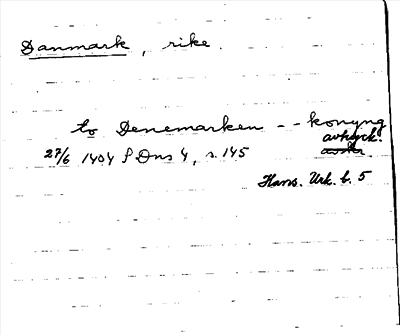 Danmark, rike.
to Denemarken -- konyng
avtryck.
27/6 1404 SDns 4, s. 145
Hans. Urk. b. 5